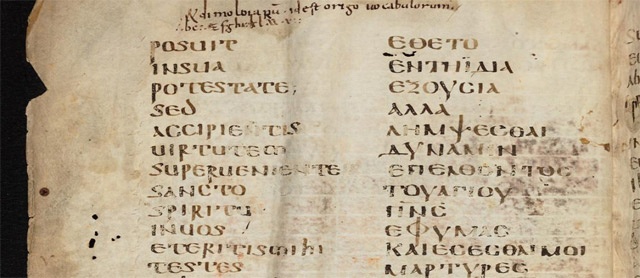 id est origo uocabulorum
POSUIT ΕΘΕΤΟ
INSUA ΕΝΤΗΙΔΙΑ
POTESTATE; ΕΞΟΥϹΙΑ
SED ΑΛΛΑ
ACCIPIENTIS ΛΗΜΨΕϹΘΑΙ
UIRTUTEM ΔΥΝΑΜΙΝ
SUPERUENIENTE ΕΠΕΛΘΟΝΤΟϹ
SANCTO ΤΟΥΑΓΙΟΥ
SPIRITU ΠΝϹ
INUOS ΕΦΥΜΑϹ
ETERITISMIHI ΚΑΙΕϹΕϹΘΑΙΜΟΙ
TESTES ΜΑΡΤΥΡΕϹ